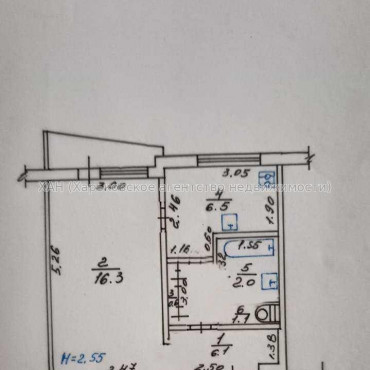 ХАН (Харьковское агентство недвижимости)
3.00
3.05
4
6.5
2.46
1.90
5.26
2
16.3
1.16
0.60
1.55
5
2.0
3.02
6
1.1
1
6.1
1.38
H=2.55
3.47
2.50